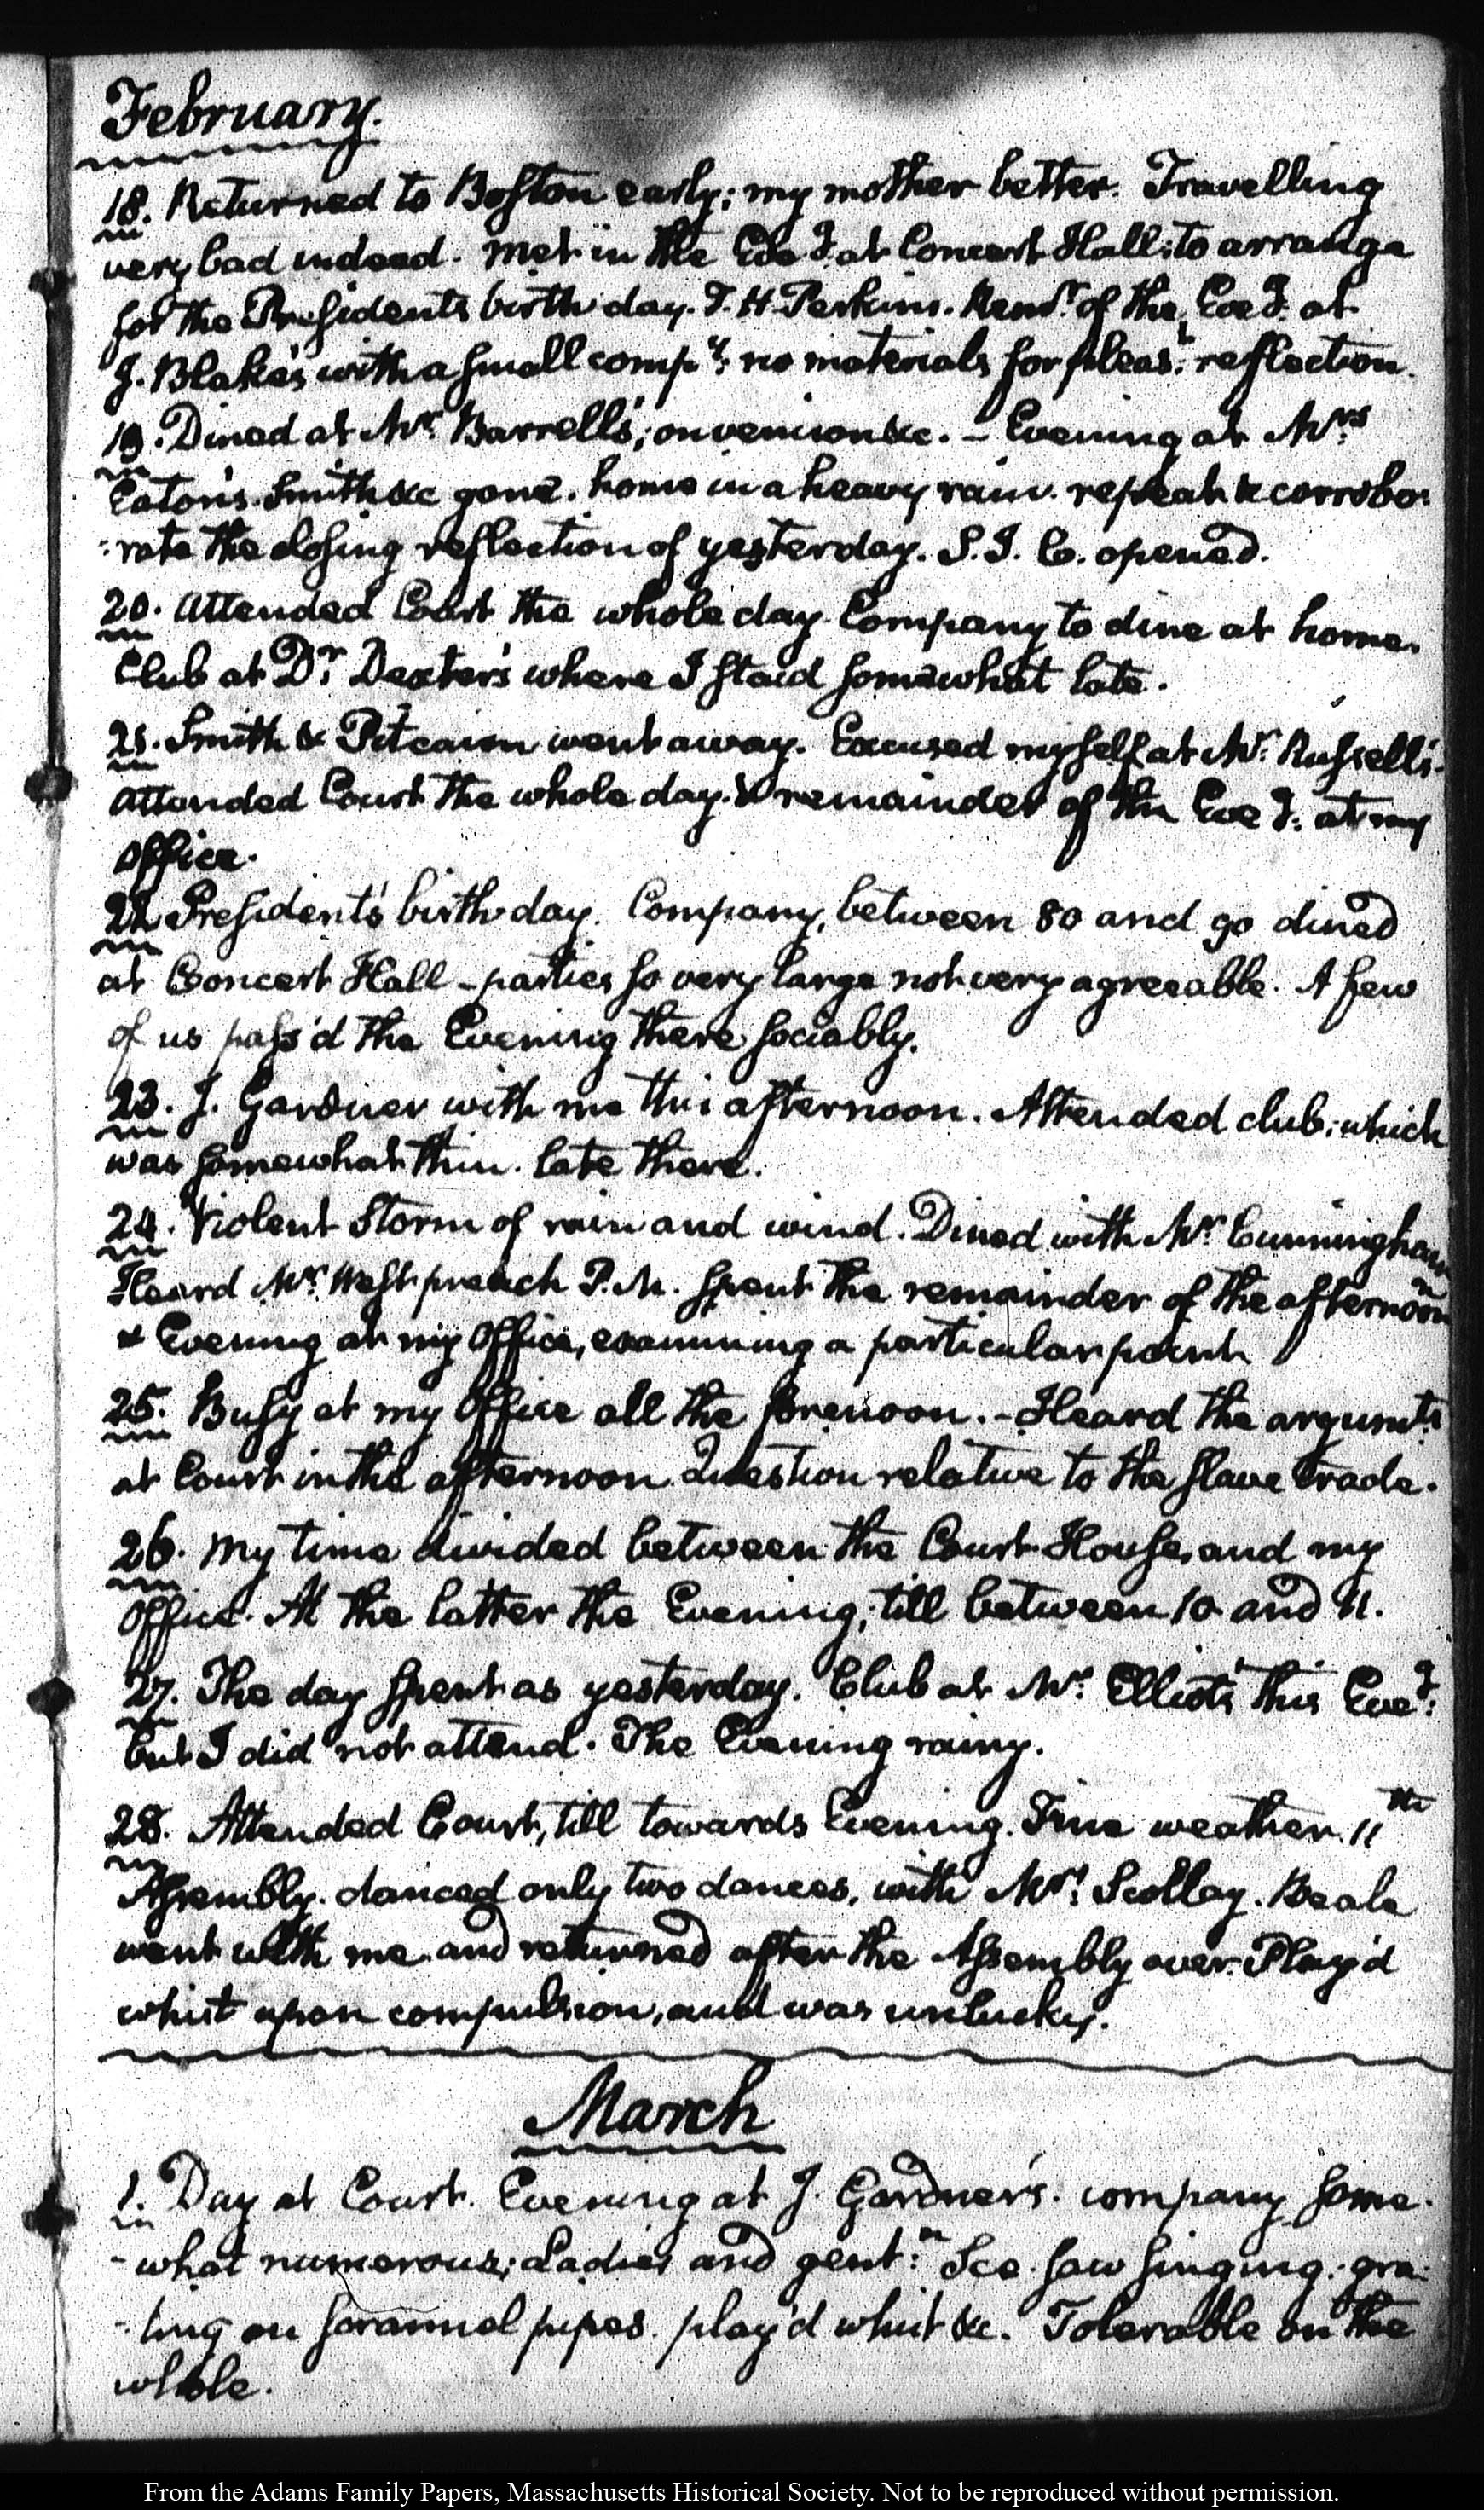 February.
18. Returned to Boston early; my mother better. Travelling
very bad indeed. Met in the Eve.g at Concert Hall: to arrange
for the Presidents birth day. T. H. Perkins. Remr. of the Eveg. at
J. Blake's with a small compy: no materials for pleast: reflection.
19. Dined at Mr. Barrell's; on venison &c. - Evening at Mrs
Eaton's. Smith &c gone. home in a heavy rain. repeat & corrobo:
:rate the closing reflection of yesterday. S. J. C. opened.
20. Attended Court the whole day. Company to dine at home.
Club at Dr. Dexter's where I staid somewhat late.
21. Smith & Pitcairn went away. Excused myself at Mr. Russell's.
Attended Court the whole day. & remainder of the Eveg: at my
Office.
22 President's birth day. Company, between 80 and 90 dined
at Concert Hall - parties so very large not very agreeable. A few
of us pass'd the Evening there sociably.
23. J. Gardner with me this afternoon. Attended club; which
was somewhat thin. late there.
24. Violent Storm of rain and wind. Dined with Mr. Cunningham
Heard Mr. West preach P.M. spent the remainder of the afternoon
& Evening at my Office, examining a particular point.
25. Busy at my Office all the forenoon. - Heard the argumts:
at Court in the afternoon Question relative to the slave trade.
26. My time divided between the Court House, and my
Office. At the latter the Evening; till between 10 and 11.
27. The day spent as yesterday. Club at Mr. Elliot's this Eveg:
but I did not attend. The Evening rainy.
28. Attended Court, till towards Evening. Fine weather. 11th
Assembly. danced only two dances, with Mrs. Scollay. Beale
went with me and returned after the Assembly over. Play'd
whist upon compulsion, and was unlucky.
March
1. Day at Court. Evening at J. Gardner's. company some-
-what numerous; Ladies and gent:n See-saw singing: gra:
:ting on scrannel pipes. play'd whist &c. Tolerable on the
whole.
From the Adams Family Papers, Massachusetts Historical Society. Not to be reproduced without permission.